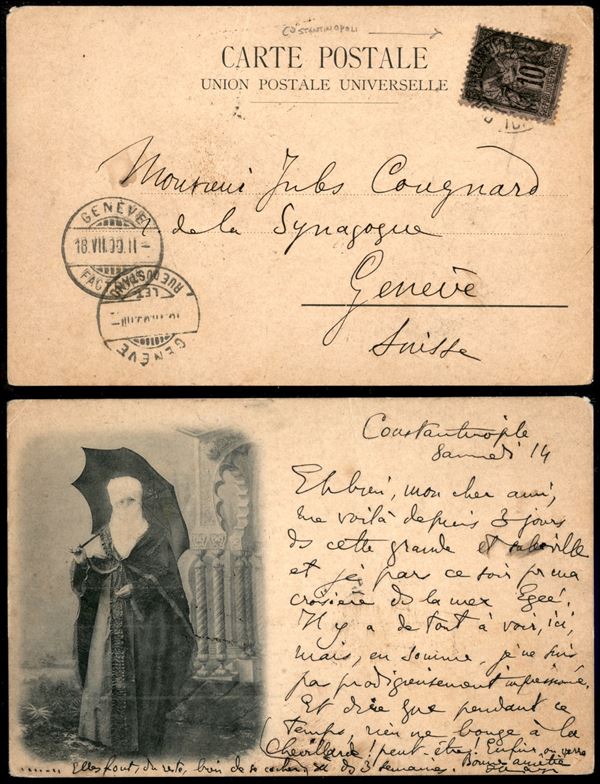 COSTANTINOPOLI
CARTE POSTALE
UNION POSTALE UNIVERSELLE
10
Monsieur Jules Cougnard
r de la Synagogue
Genève
Suisse
GENÈVE
18.VII.00.II-
FACT
RUE DU STAND
LET
GENÈVE
Constantinople
Samedi 14
Eh bien, mon cher ami,
me voilà depuis 3 jours
ds cette grande et sale ville
et je pars ce soir pr ma
croisière ds la mer Egée.
Il y a de tout à voir, ici,
mais, en somme, je ne suis
pas prodigieusement impressionné.
Et dire que pendant ce
temps, rien ne bouge à la
Chevillarde! peut-être! Enfin on verra
Elles font, du reste, bien de se cacher ds 3 semaines. Bonne amitié